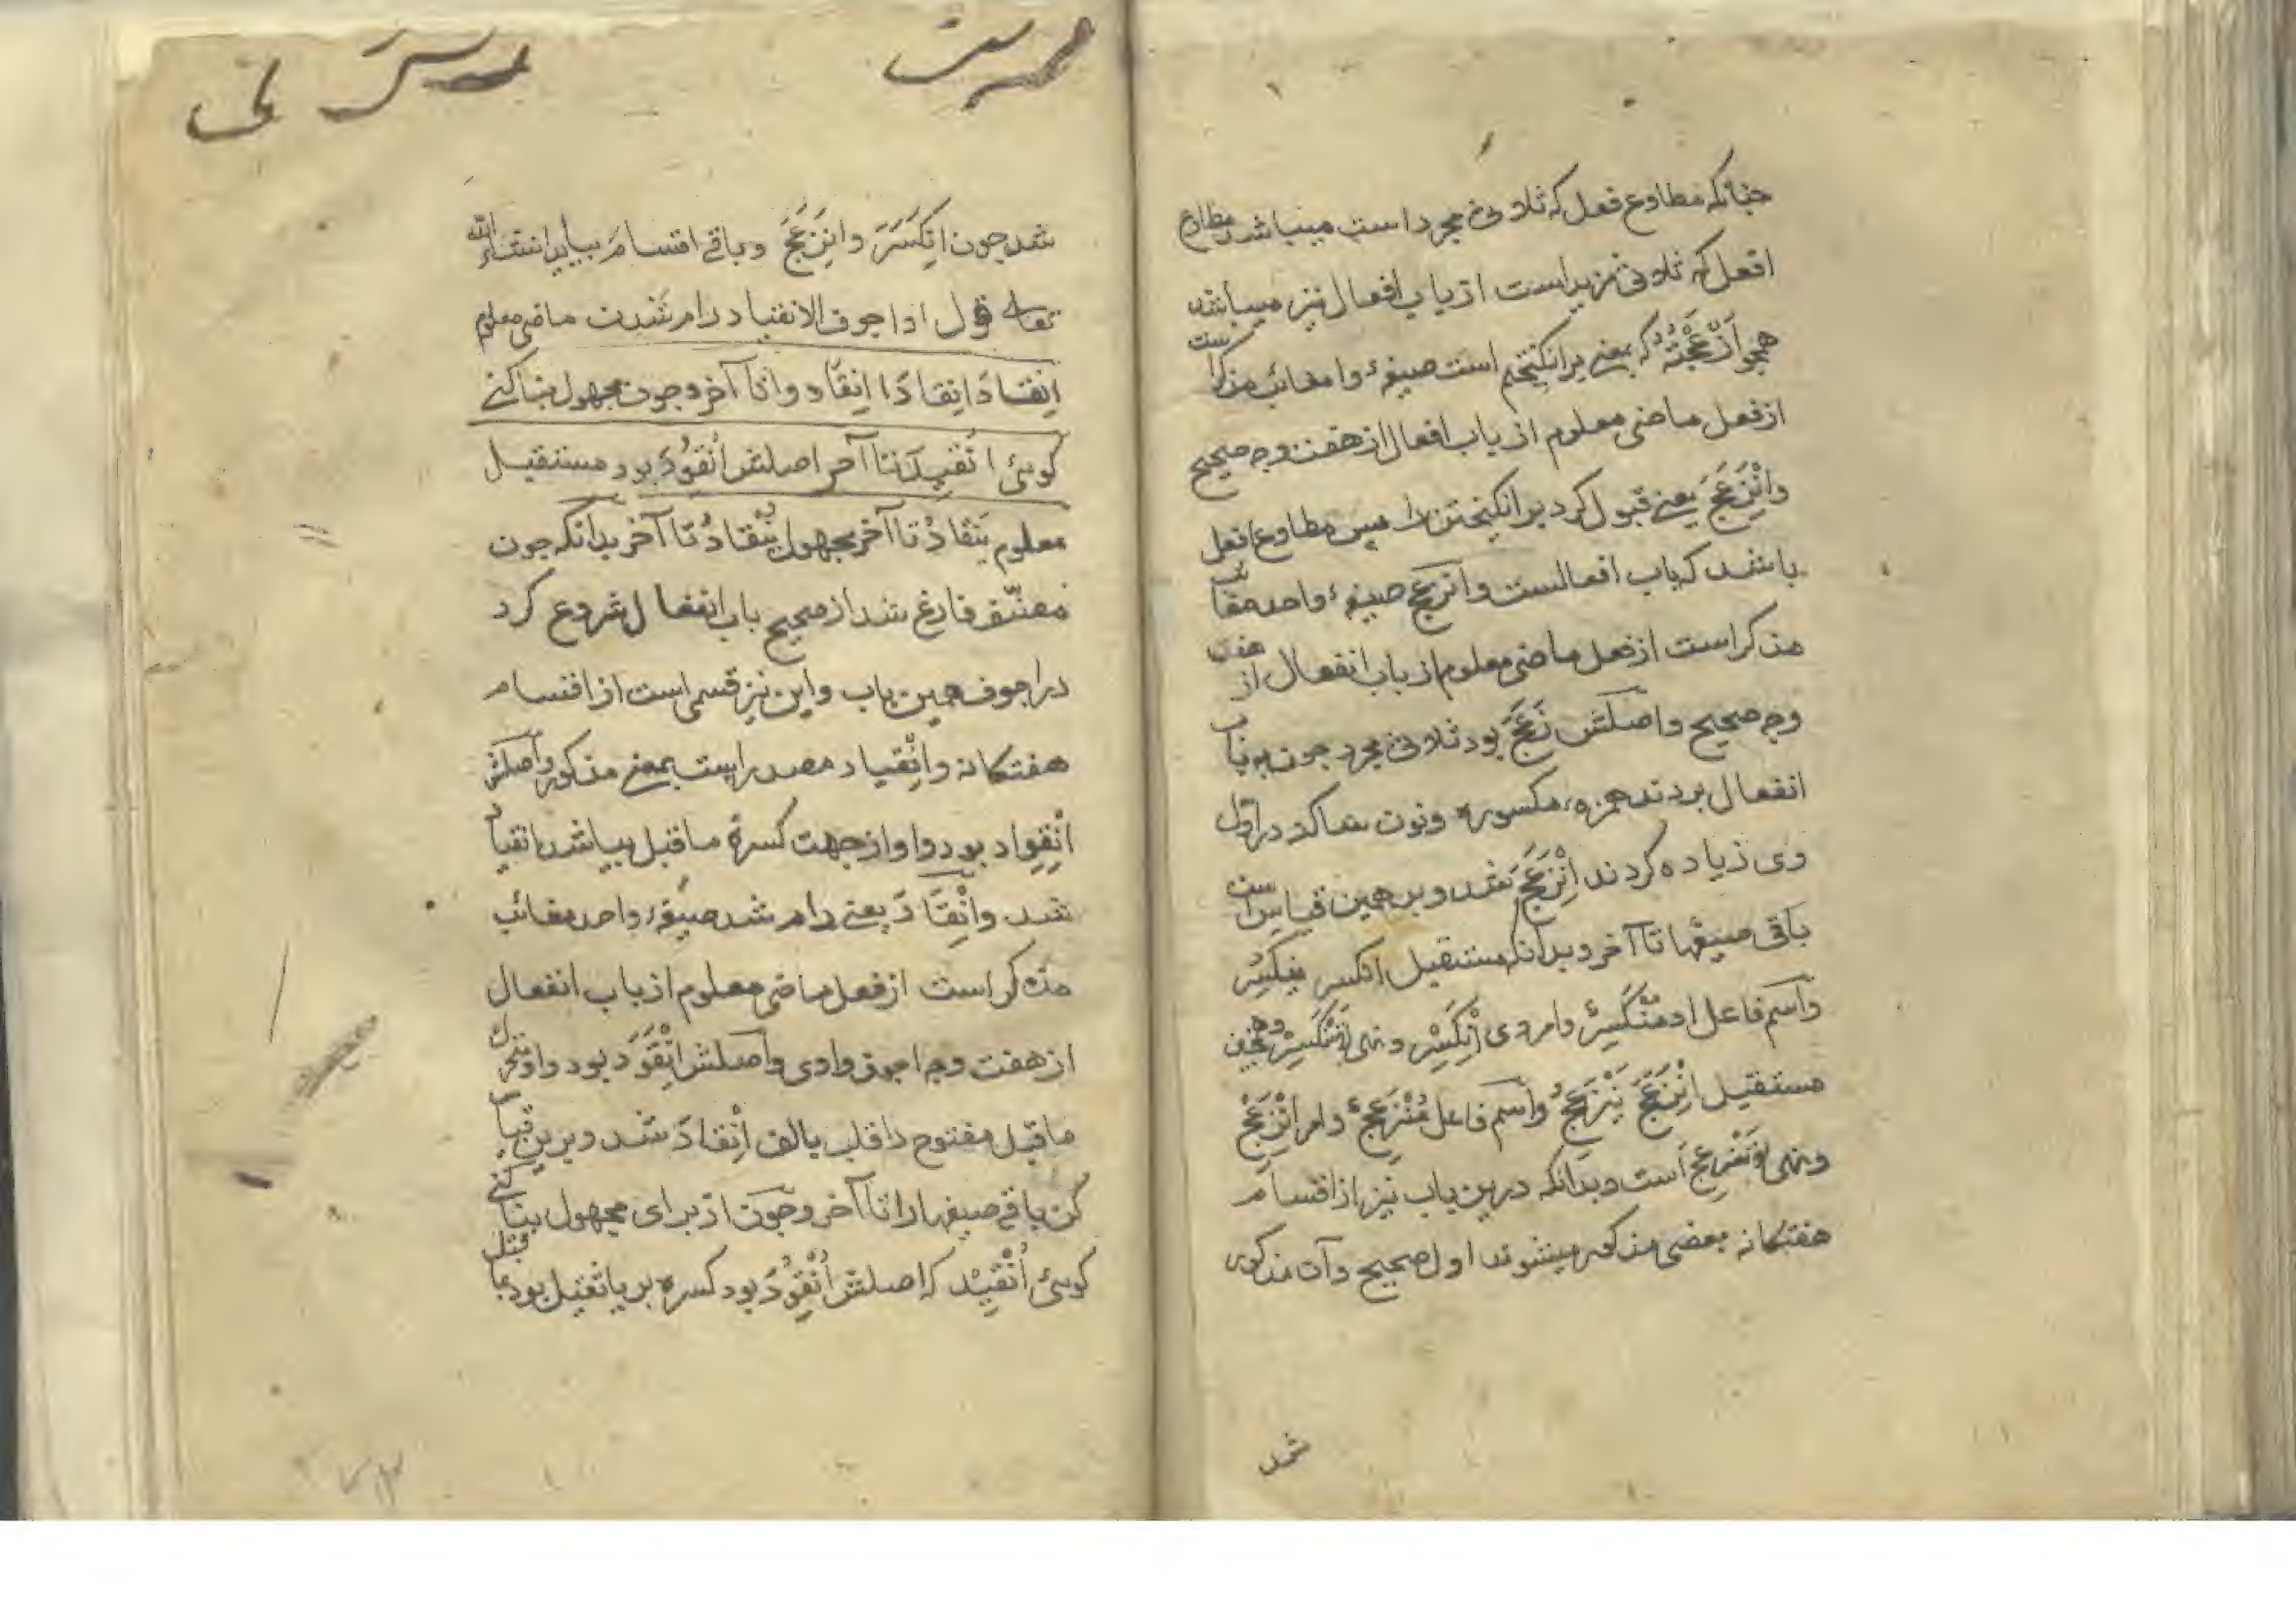 چنانکه مطاوع فعل که ثلاثی مجرد است میباشد مطاوع
افعل که ثلاثی مزید است از باب افعال نیز میباشد
همچو اَزْعَجْتُهُ که بمعنی برانکیختم است صیغهٔ
از فعل ماضی معلوم از باب افعال از هفت وجه صحیح
وانْزَعَجَ یعنی قبول کرد برانکیختن را پس مطاوع افعل
باشد که باب افعالست وانزعج صیغهٔ واحد مغائب
مذکر است از فعل ماضی معلوم از باب انفعال از هفت
وجه صحیح واصلش زَعَجَ بود ثلاثی مجرد چون به باب
انفعال بردند همزهٔ مکسوره ونون ساکن در اول
وی زیاده کردند اِنْزَعَجَ شد وبر همین قیاس است
باقی صیغها تا آخر وبدانکه مستقبل انکسر ینکسر
واسم فاعل او مُنْکَسِرٌ وامر وی اِنْکَسِرْ ونهی لا تَنْکَسِرْ وهمچنین
مستقبل اِنْزَعَجَ یَنْزَعِجُ واسم فاعل مُنْزَعِجٌ وامر اِنْزَعِجْ
ونهی لا تَنْزَعِجْ است وبدانکه درین باب نیز از اقسام
هفتکانه بعضی مذکور میشوند اول صحیح وآن مذکور
شد
شد چون اِنْکَسَرَ واِنْزَعَجَ وباقی اقسام بیاید انشاء الله
تعالی قول او اجوف الانقیاد رام شدن ماضی معلوم
اِنْقَادَ اِنْقَادَا اِنْقَادُوا تا آخر وچون مجهول بنا کنی
کوئی اُنْقِیدَ تا آخر اصلش اُنْقُوِدَ بود مستقبل
معلوم یَنْقَادُ تا آخر مجهول یُنْقَادُ تا آخر بدانکه چون
مصنّف فارغ شد از صحیح باب انفعال شروع کرد
در اجوف همین باب واین نیز قسمی است از اقسام
هفتکانه واِنْقِیاد مصدر است بمعنی مذکور واصلش
اِنْقِوَاد بود واو از جهت کسرهٔ ماقبل بیا شد انقیاد
شد واِنْقَادَ یعنی رام شد صیغهٔ واحد مغائب
مذکر است از فعل ماضی معلوم از باب انفعال
از هفت وجه اجوف واوی واصلش اِنْقَوَدَ بود واو متحرک
ماقبل مفتوح را قلب بالف اِنْقَادَ شد وبرین قیاس
کن باقی صیغها را تا آخر وچون از برای مجهول بنا کنی
کوئی اُنْقِیْدَ که اصلش اُنْقُوِدَ بود کسره بر یا ثقیل بود بما قبل